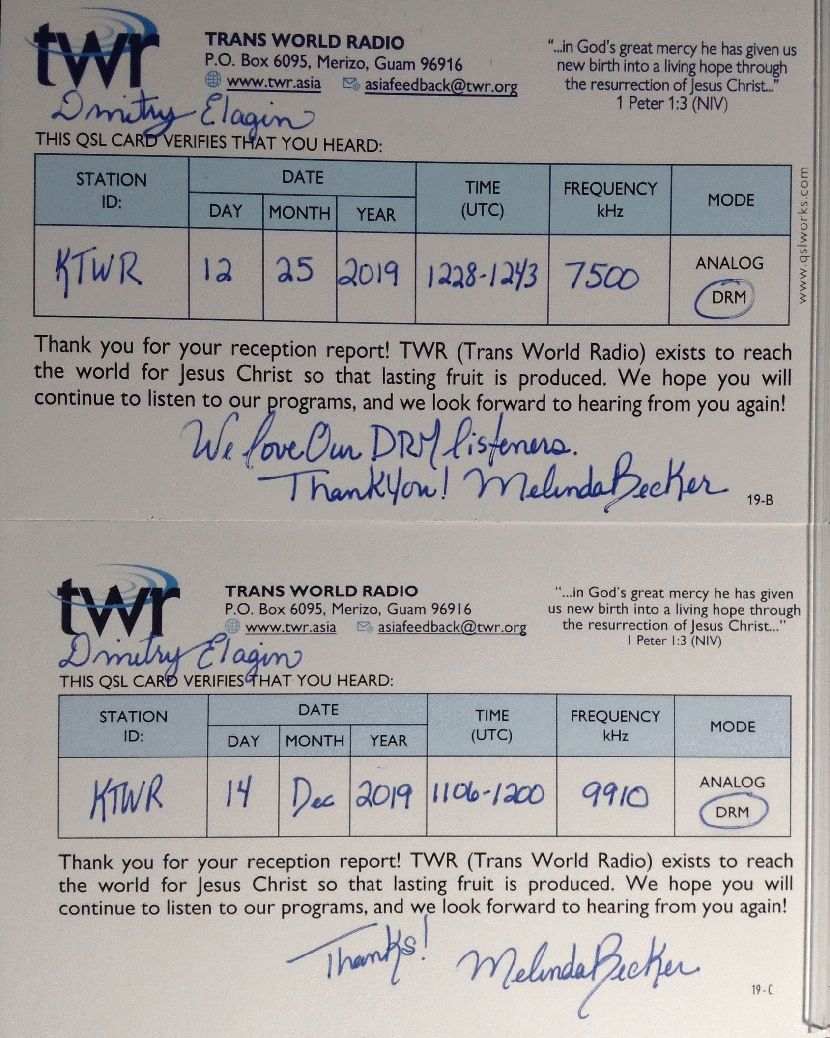 twr
TRANS WORLD RADIO
P.O. Box 6095, Merizo, Guam 96916
www.twr.asia asiafeedback@twr.org
"...in God's great mercy he has given us
new birth into a living hope through
the resurrection of Jesus Christ..."
1 Peter 1:3 (NIV)
Dmitry Elagin
THIS QSL CARD VERIFIES THAT YOU HEARD:
STATION ID: DATE DAY MONTH YEAR TIME (UTC) FREQUENCY kHz MODE
KTWR 12 25 2019 1228-1243 7500 ANALOG DRM
www.qslworks.com
Thank you for your reception report! TWR (Trans World Radio) exists to reach
the world for Jesus Christ so that lasting fruit is produced. We hope you will
continue to listen to our programs, and we look forward to hearing from you again!
We love Our DRM listeners.
Thank You! Melinda Becker
19-B
twr
TRANS WORLD RADIO
P.O. Box 6095, Merizo, Guam 96916
www.twr.asia asiafeedback@twr.org
"...in God's great mercy he has given
us new birth into a living hope through
the resurrection of Jesus Christ..."
1 Peter 1:3 (NIV)
Dmitry Elagin
THIS QSL CARD VERIFIES THAT YOU HEARD:
STATION ID: DATE DAY MONTH YEAR TIME (UTC) FREQUENCY kHz MODE
KTWR 14 Dec 2019 1106-1200 9910 ANALOG DRM
Thank you for your reception report! TWR (Trans World Radio) exists to reach
the world for Jesus Christ so that lasting fruit is produced. We hope you will
continue to listen to our programs, and we look forward to hearing from you again!
Thanks! Melinda Becker
19-C